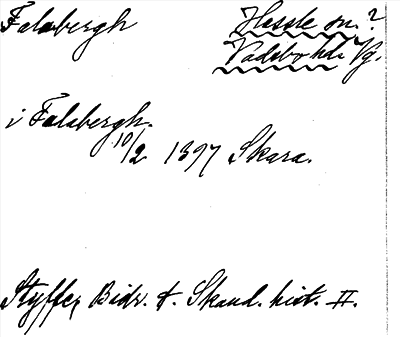 Falabergh Hassle sn.?
Vadsbo hd. Vg.
i Falabergh.
10/2 1397 Skara.
Styffe, Bidr. t. Skand. hist. II.